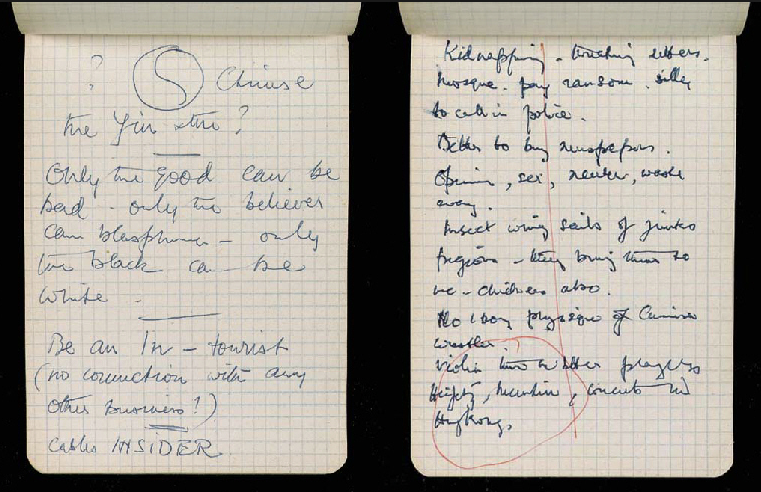 ?
Chinese
The Yin + the ?
Only the good can be
bad - only the believer
can blaspheme - only
the black can be
white -
Be an In-tourist
(no connection with any
other business!)
Cable INSIDER
Kidnapping. touching
Mosque. pay ransom. silly
to call in police.
Better to buy newspapers.
Opium, sex, waste
away.
Insect wing sails of junks
they bring them to
me - children also.
physique of Chinese
wrestler.
Violin players
Heifetz, Menuhin, concerts in
Hongkong.